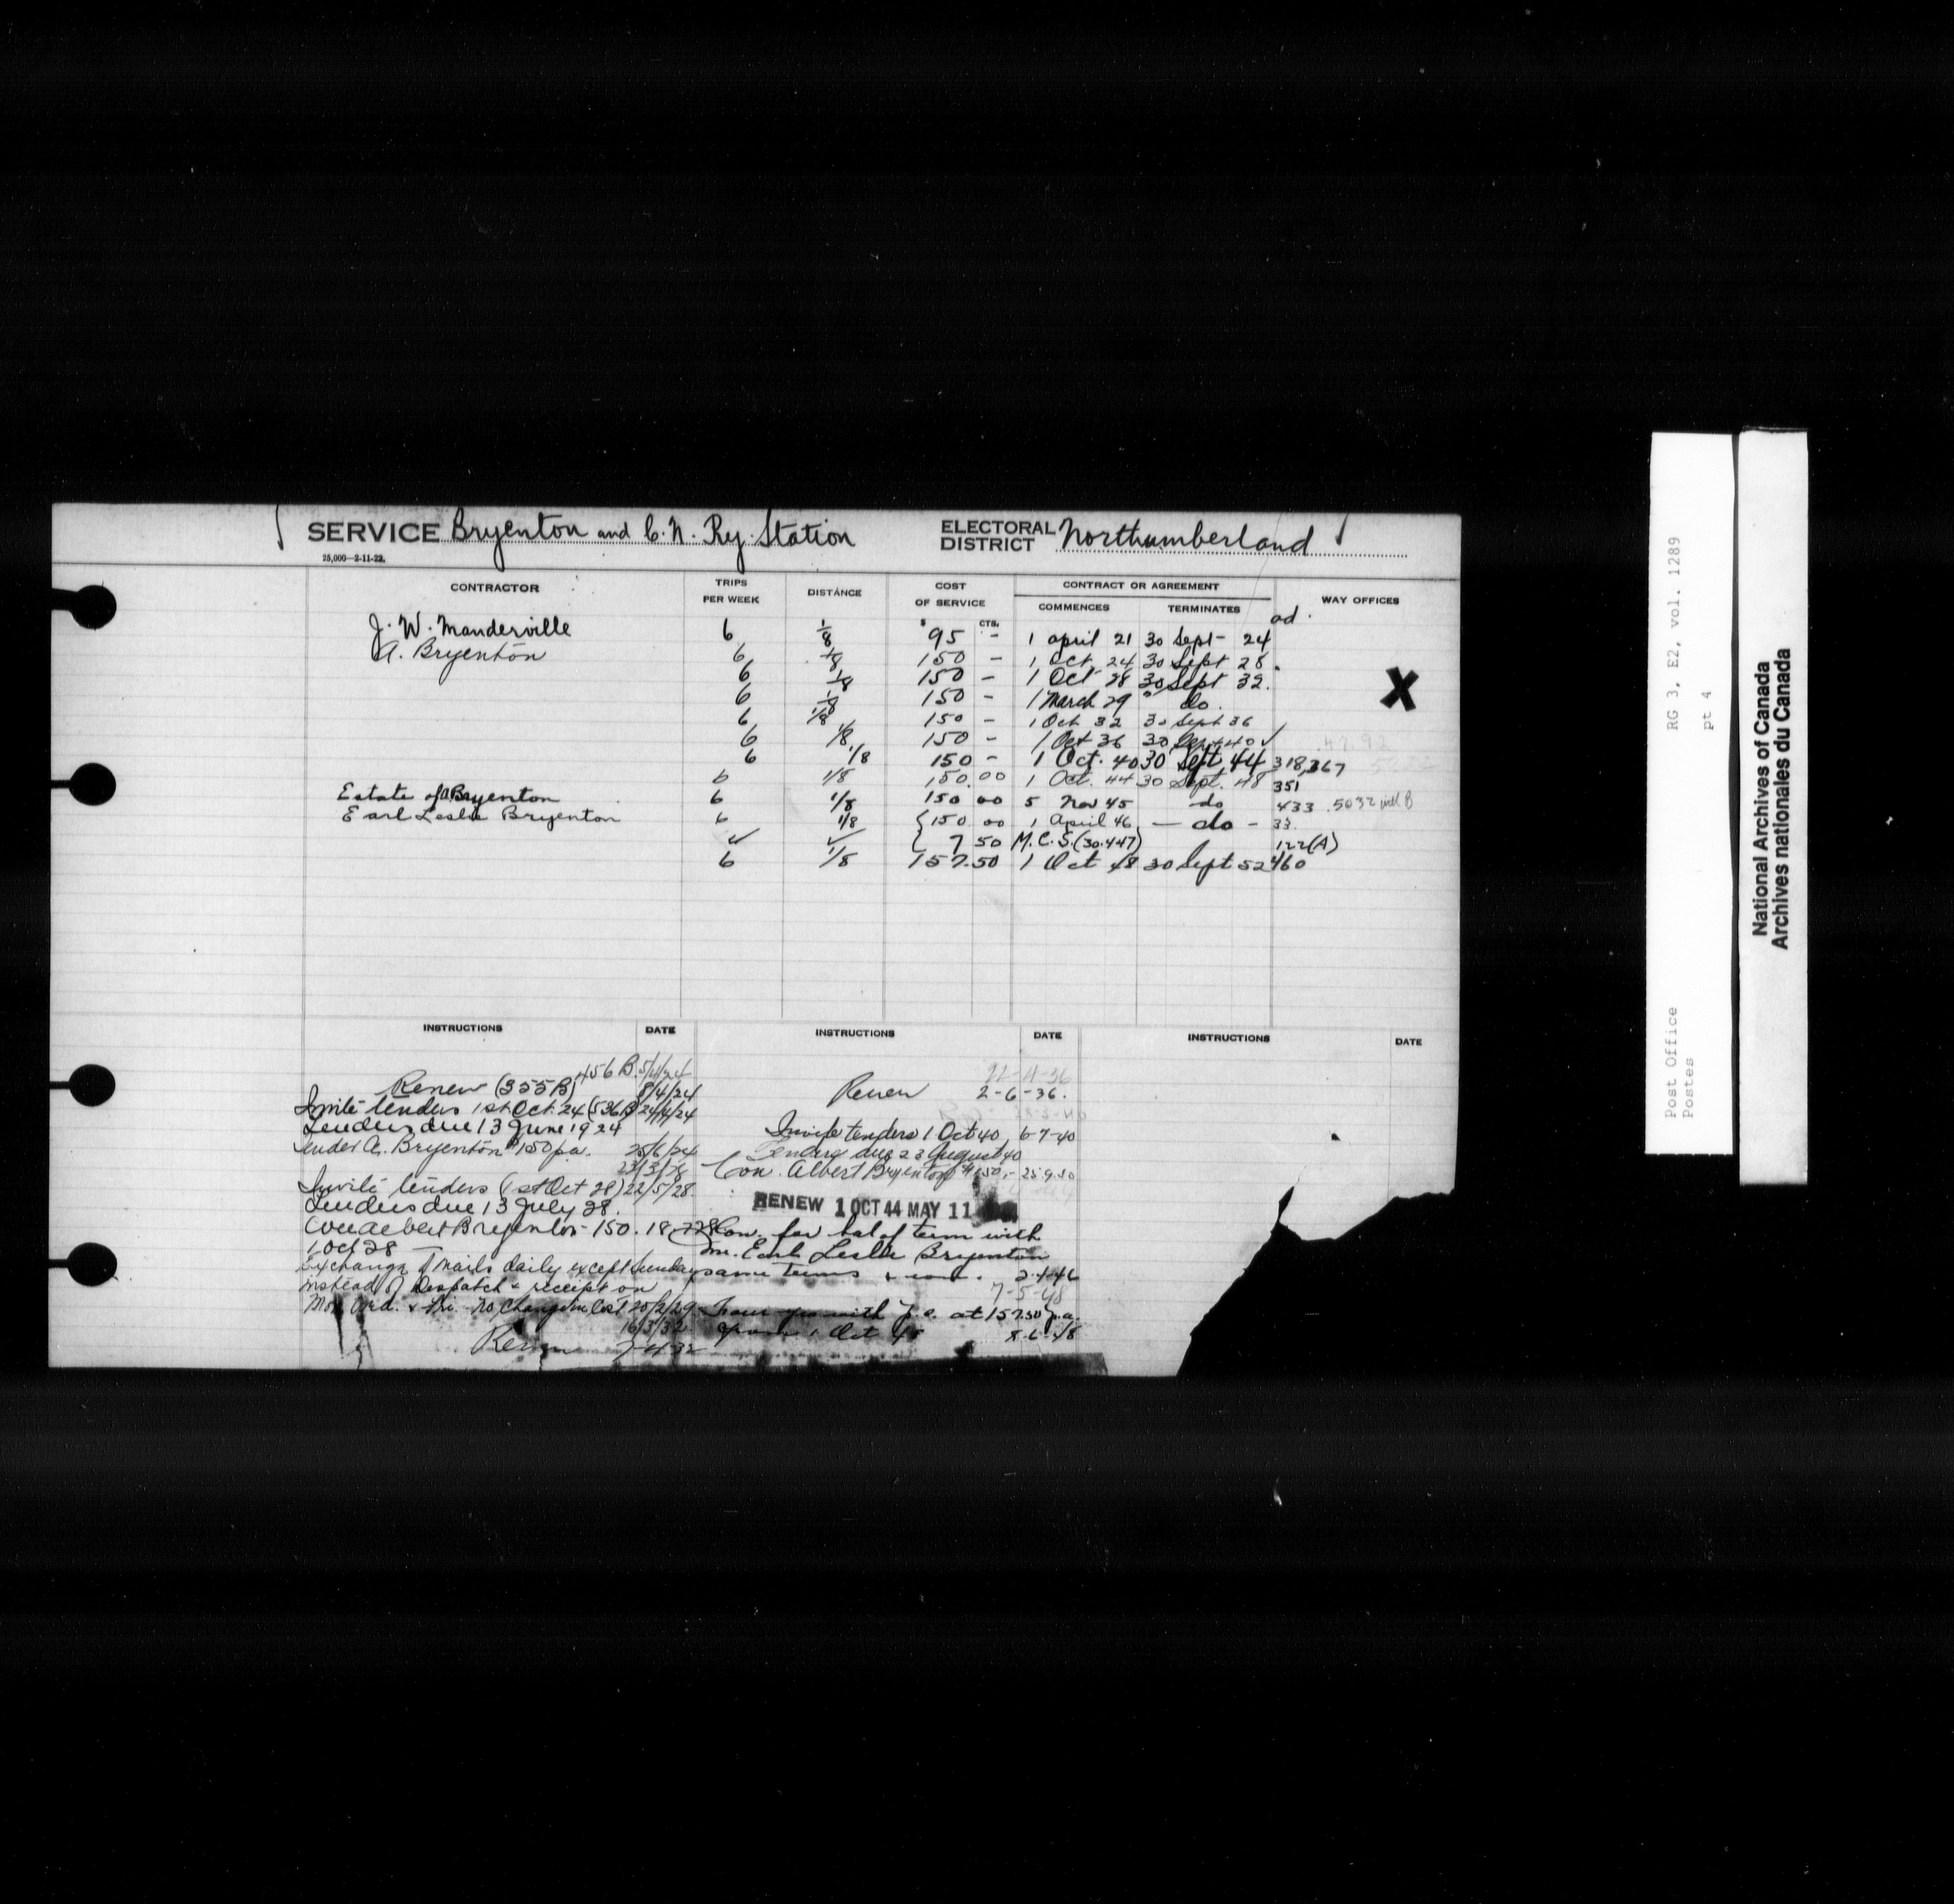 SERVICE Bryenton and C. N. Ry. Station ELECTORAL DISTRICT Northumberland
25,000—2-11-22.
CONTRACTOR TRIPS PER WEEK DISTANCE COST OF SERVICE CONTRACT OR AGREEMENT WAY OFFICES
COMMENCES TERMINATES
$ CTS. ad.
J. W. Manderville 6 1/8 95 - 1 april 21 30 Sept - 24
A. Bryenton 6 1/8 150 - 1 Oct. 24 30 Sept 28.
6 1/8 150 - 1 Oct 28 30 Sept 32.
6 1/8 150 - 1 March 29 " do. X
6 1/8 150 - 1 Oct 32 30 Sept 36
6 1/8 150 - 1 Oct 36 30 Sept 40 ✓
6 1/8 150 - 1 Oct. 40 30 Sept 44 318,367
6 1/8 150.00 1 Oct. 44 30 Sept. 48 351
Estate of A Bryenton 6 1/8 150 00 5 Nov 45 do 433
Earl Leslie Bryenton 6 1/8 { 150 00 1 April 46 — do - 33.
✓ ✓ { 7 50 M.C.S. (30.4.47) 122(A)
6 1/8 157.50 1 Oct 48 30 Sept 52 460
INSTRUCTIONS DATE INSTRUCTIONS DATE INSTRUCTIONS DATE
456 B. 5/4/24
Renew (355 B) 8/4/24
Invite tenders 1st Oct. 24 (536 B) 24/4/24
Tenders due 13 June 1924
Tender A. Bryenton $150 p.a. 25/6/24
23/3/28
Invite tenders (1st Oct 28) 22/5/28.
Tenders due 13 July 28.
Con Albert Bryenton - 150. 18
1 Oct 28
Exchange of mails daily except Sunday
instead of Despatch & receipt on
Mon. Wed. & Fri. No change in Cost 20/2/29
16/3/32
Renew 7-4-32
22-4-36
Renew 2-6-36.
Invite tenders 1 Oct 40 6-7-40
Tenders due 23 August 40
Con. Albert Bryenton $150.- 25.9.40
RENEW 1 OCT 44 MAY 11
Con. for bal of term with
Mr. Earl Leslie Bryenton
same terms 2-4-46
7-5-48
Four yrs with p.c. at 157.50 p.a.
from 1 Oct 48 8-6-48
RG 3, E2, vol. 1289
pt 4
Post Office
Postes
National Archives of Canada
Archives nationales du Canada